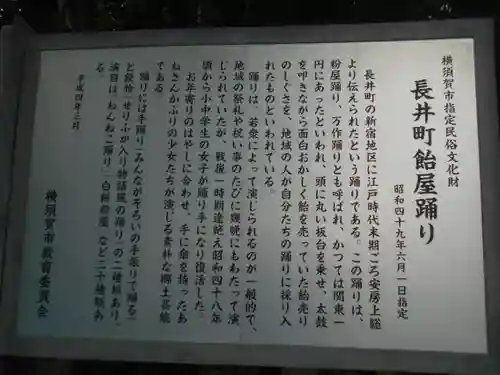 横須賀市指定民俗文化財
長井町飴屋踊り
昭和四十九年六月一日指定
長井町の新宿地区に江戸時代末期ごろ安房上総
より伝えられたという踊りである。この踊りは、
粉屋踊り、万作踊りとも呼ばれ、かつては関東一
円にあったといわれ、頭に丸い板台を乗せ、太鼓
を叩きながら面白おかしく飴を売っていた飴売り
のしぐさを、地域の人が自分たちの踊りに採り入
れたものといわれている。
踊りは、若衆によって演じられるのが一般的で、
地域の祭礼や祝い事のたびに幾晩にもわたって演
じられていたが、戦後一時期途絶え昭和四十八年
頃から小中学生の女子が踊り手になり復活した。
お年寄りのはやしに合わせ、手に扇を持ったあ
ねさんかぶりの少女たちが演じる素朴な郷土芸能
である
踊りには手踊り(みんながそろいの手振りで踊る)
と段物(せりふが入り物語風の踊り)の二種類あり、
演目は、「ねんねこ踊り」「白桝粉屋」など二十種類あ
る。
平成四年三月
横須賀市教育委員会